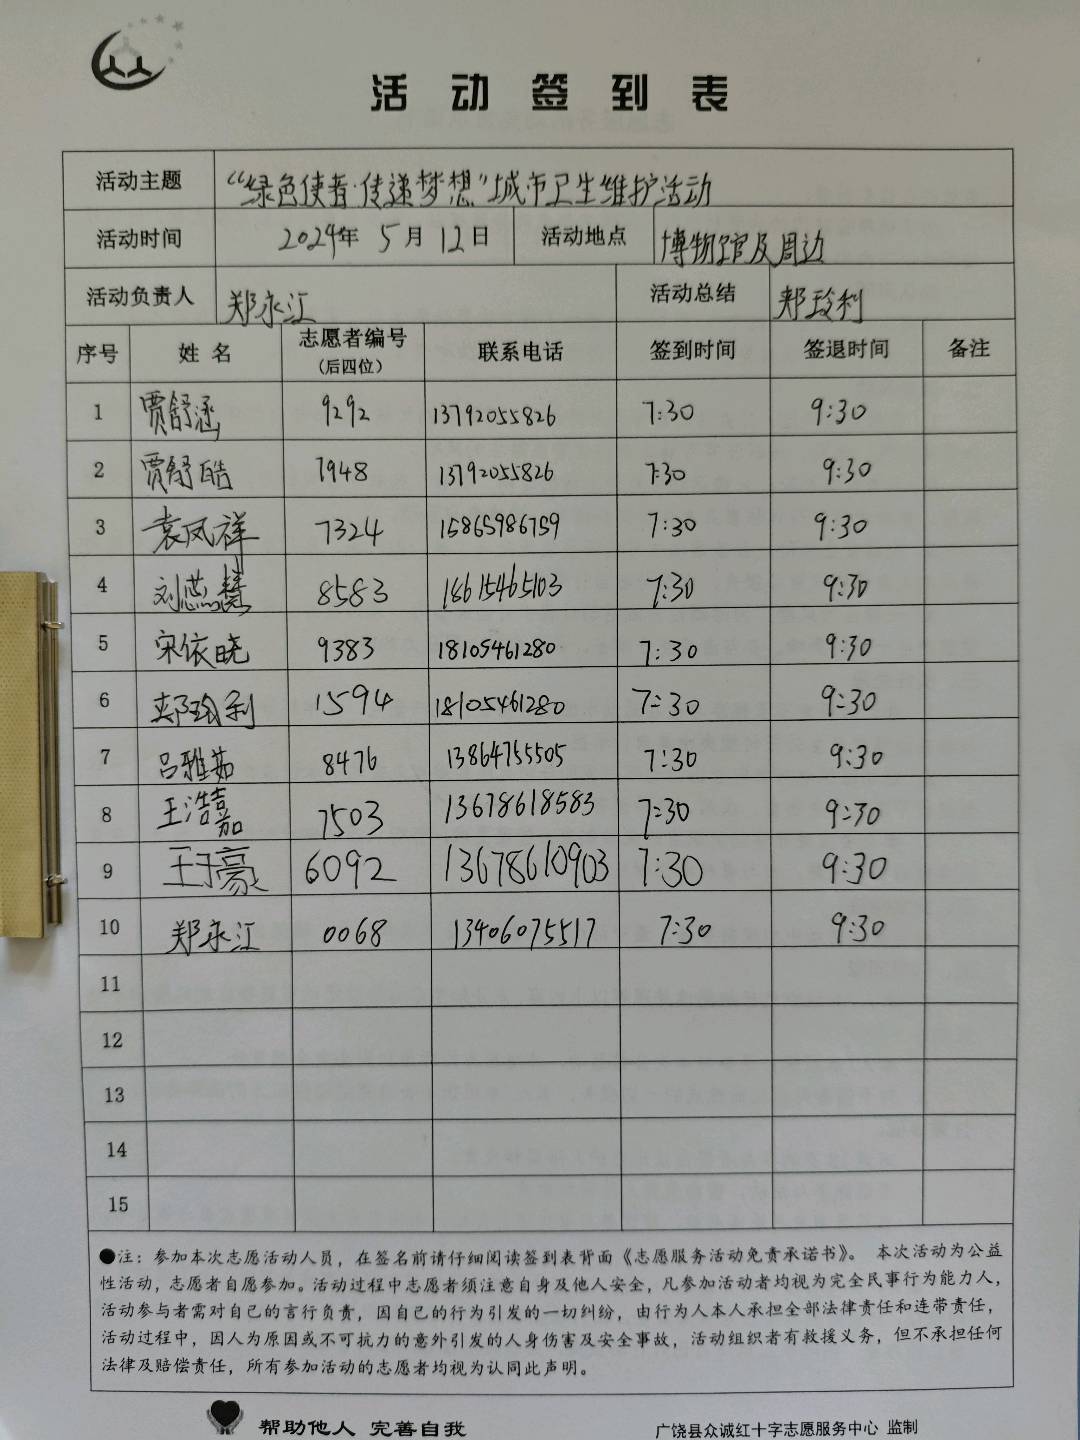 活动签到表
活动主题 “绿色使者·传递梦想”城市卫生维护活动
活动时间 2024年 5月 12日 活动地点 博物馆及周边
活动负责人 郑永江 活动总结 郏玲利
序号 姓名 志愿者编号（后四位） 联系电话 签到时间 签退时间 备注
1 贾舒涵 9292 13792055826 7:30 9:30
2 贾舒皓 7948 13792055826 7:30 9:30
3 袁凤祥 7324 15865986759 7:30 9:30
4 刘燕慧 8583 18615465103 7:30 9:30
5 宋依晓 9383 18105461280 7:30 9:30
6 郏玲利 1594 18105461280 7:30 9:30
7 吕雅茹 8476 13864755505 7:30 9:30
8 王浩嘉 7503 13678618583 7:30 9:30
9 王于豪 6092 13678610903 7:30 9:30
10 郑永江 0068 13406075517 7:30 9:30
11
12
13
14
15
●注：参加本次志愿活动人员，在签名前请仔细阅读签到表背面《志愿服务活动免责承诺书》。 本次活动为公益
性活动，志愿者自愿参加。活动过程中志愿者须注意自身及他人安全，凡参加活动者均视为完全民事行为能力人，
活动参与者需对自己的言行负责，因自己的行为引发的一切纠纷，由行为人本人承担全部法律责任和连带责任，
活动过程中，因人为原因或不可抗力的意外引发的人身伤害及安全事故，活动组织者有救援义务，但不承担任何
法律及赔偿责任，所有参加活动的志愿者均视为认同此声明。
帮助他人 完善自我 广饶县众诚红十字志愿服务中心 监制